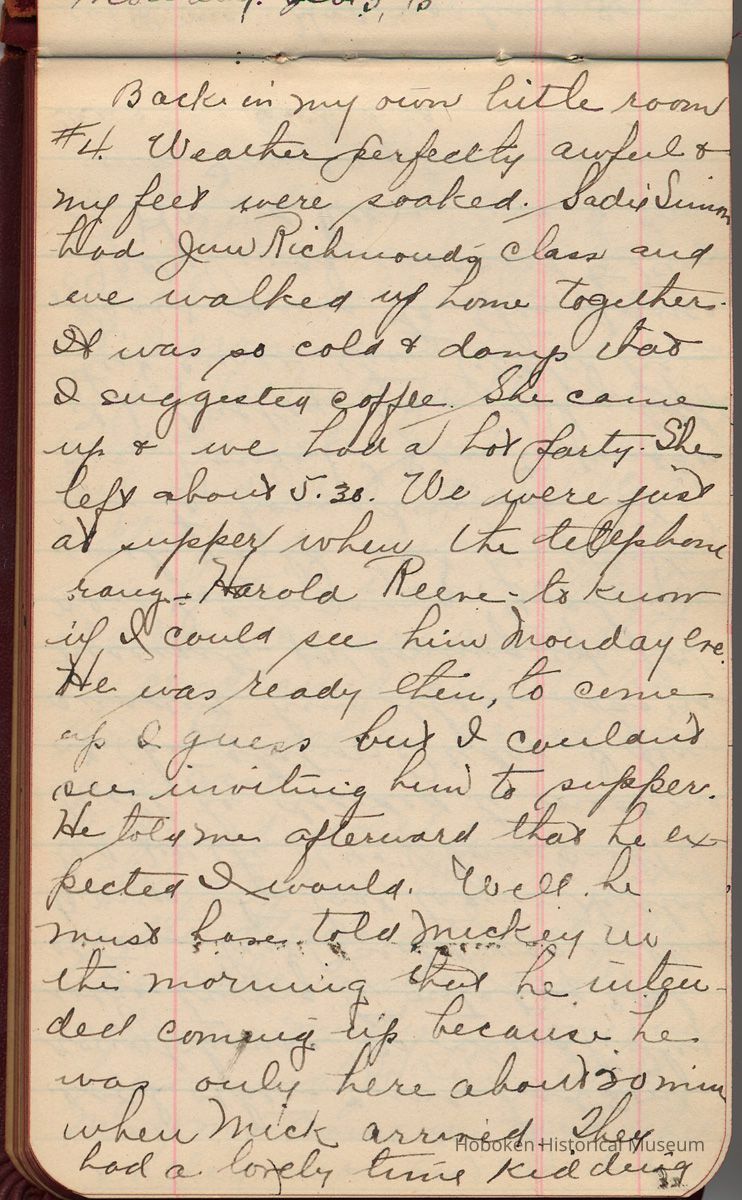 Back in my own little room
#4. Weather perfectly awful &
my feet were soaked. Sadie Simon
had Jim Richmond's class and
we walked up home together.
It was so cold & damp that
I suggested coffee. She came
up & we had a hot party. She
left about 5.30. We were just
at supper when the telephone
rang - Harold Reeve - to know
if I could see him Monday Eve.
He was ready then, to come
up I guess but I couldn't
see inviting him to supper.
He told me afterward that he ex-
pected I would. Well he
must have told Mickey in
the morning that he inten-
ded coming up because he
was only here about 20 min
when Mick arrived. They
had a lovely time kidding
Hoboken Historical Museum